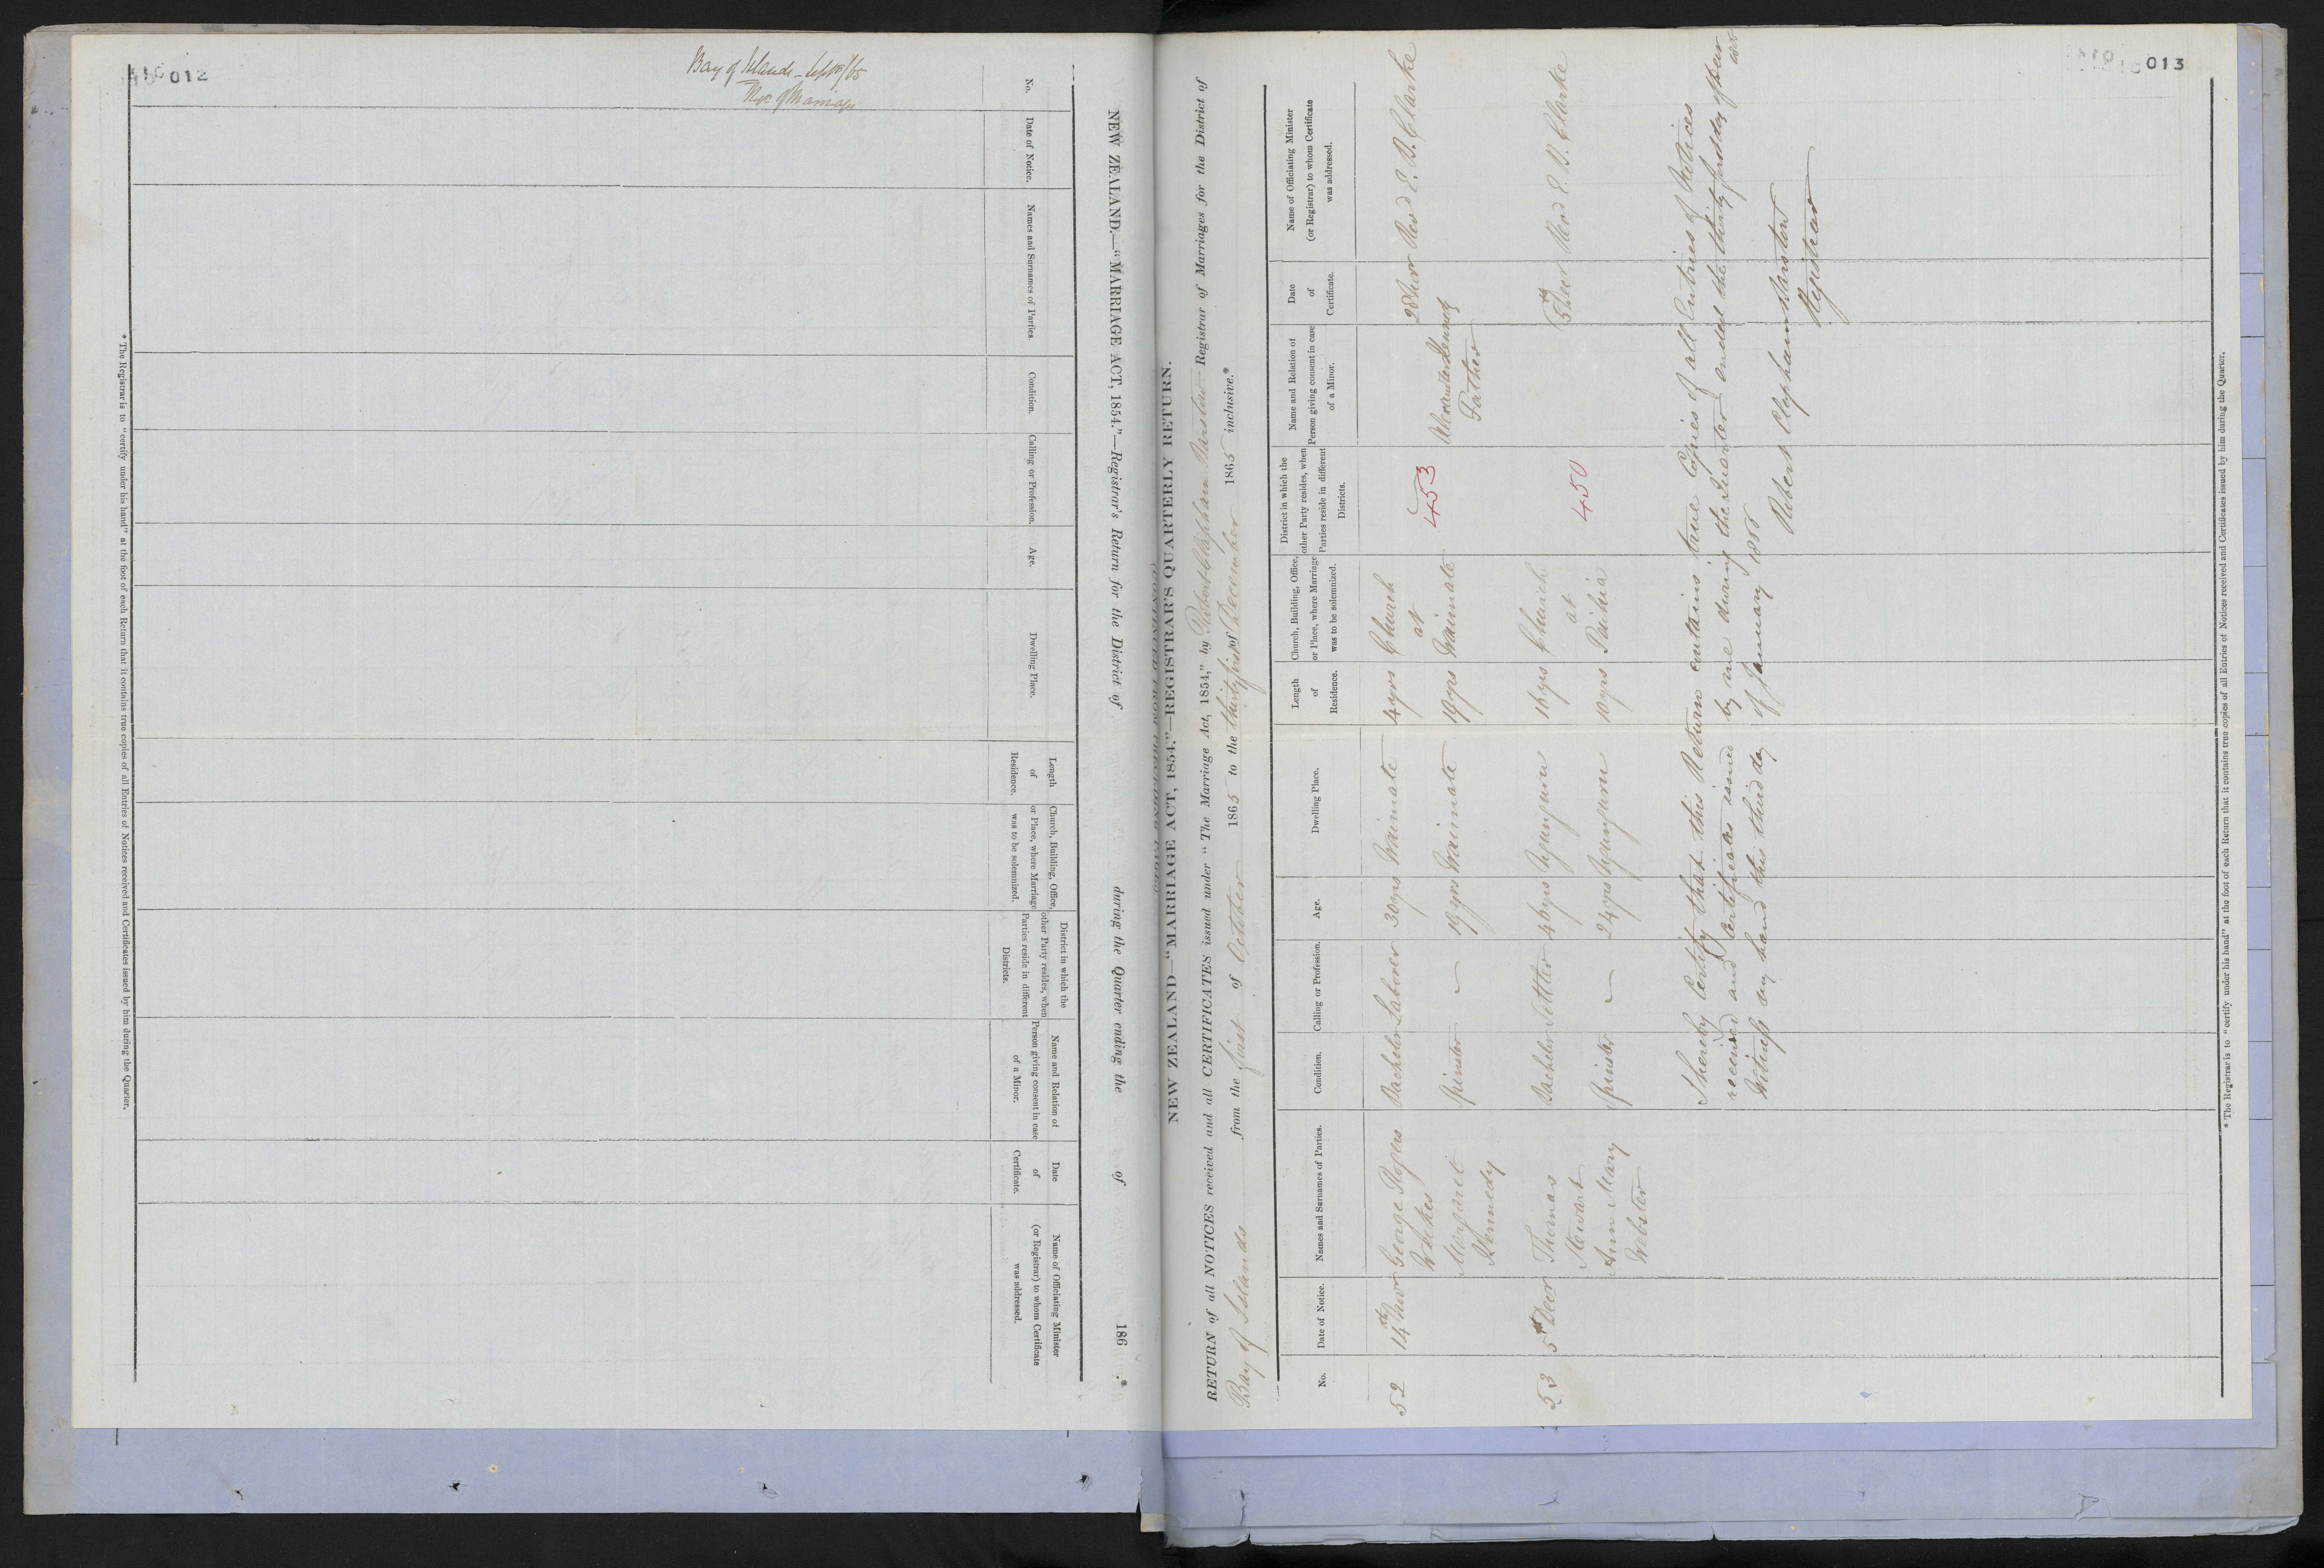 012
Bay of Islands - Sept 65
Regr of Marriages
NEW ZEALAND.—"MARRIAGE ACT, 1854."—Registrar's Return for the District of during the Quarter ending the of 186 .*
No.
Date of Notice.
Names and Surnames of Parties.
Condition.
Calling or Profession.
Age.
Dwelling Place.
Length of Residence.
Church, Building, Office, or Place, where Marriage was to be solemnized.
District in which the other Party resides, when Parties reside in different Districts.
Name and Relation of Person giving consent in case of a Minor.
Date of Certificate.
Name of Officiating Minister (or Registrar) to whom Certificate was addressed.
* The Registrar is to "certify under his hand" at the foot of each Return that it contains true copies of all Entries of Notices received and Certificates issued by him during the Quarter.
013
NEW ZEALAND—"MARRIAGE ACT, 1854."—REGISTRAR'S QUARTERLY RETURN.
RETURN of all NOTICES received and all CERTIFICATES issued under "The Marriage Act, 1854," by Robert Clapham Barstow Registrar of Marriages for the District of
Bay of Islands from the first of October 1865 to the thirty first of December 1865 inclusive.*
No.
Date of Notice.
Names and Surnames of Parties.
Condition.
Calling or Profession.
Age.
Dwelling Place.
Length of Residence.
Church, Building, Office, or Place, where Marriage was to be solemnized.
District in which the other Party resides, when Parties reside in different Districts.
Name and Relation of Person giving consent in case of a Minor.
Date of Certificate.
Name of Officiating Minister (or Registrar) to whom Certificate was addressed.
52 14th Novr George Rogers Bachelor Laborer 30yrs Waimate 4yrs Church 453 28 Novr Revd E. B. Clarke
Wilkes at
Margaret Spinster 19yrs Waimate 19yrs Waimate Alexander Kennedy
Kennedy Father
53 5th Decr Thomas Bachelor Settler 46yrs Ngunguru 16yrs Church 450 5th Decr Revd E. B. Clarke
Stewart at
Ann Mary Spinster 24yrs Ngunguru 10yrs Paihia
Webster
I hereby Certify that this Return contains true Copies of all Entries of Notices
received and Certificates issued by me during the Quarter ended the thirty first day of Decr 1865
Witness my hand this third day of January 1866
Robert Clapham Barstow
Registrar
* The Registrar is to "certify under his hand" at the foot of each Return that it contains true copies of all Entries of Notices received and Certificates issued by him during the Quarter.